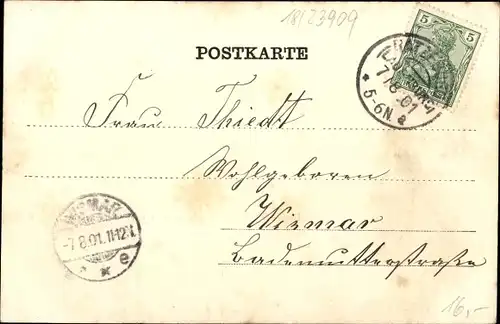 18/23909
5 5
POSTKARTE
7/8-01
5-6N
e
Frau Thiedt
Wohlgeboren
WISMAR
-7.8.01.11-12V.
e
Wismar
Badenutterstraße
16,-